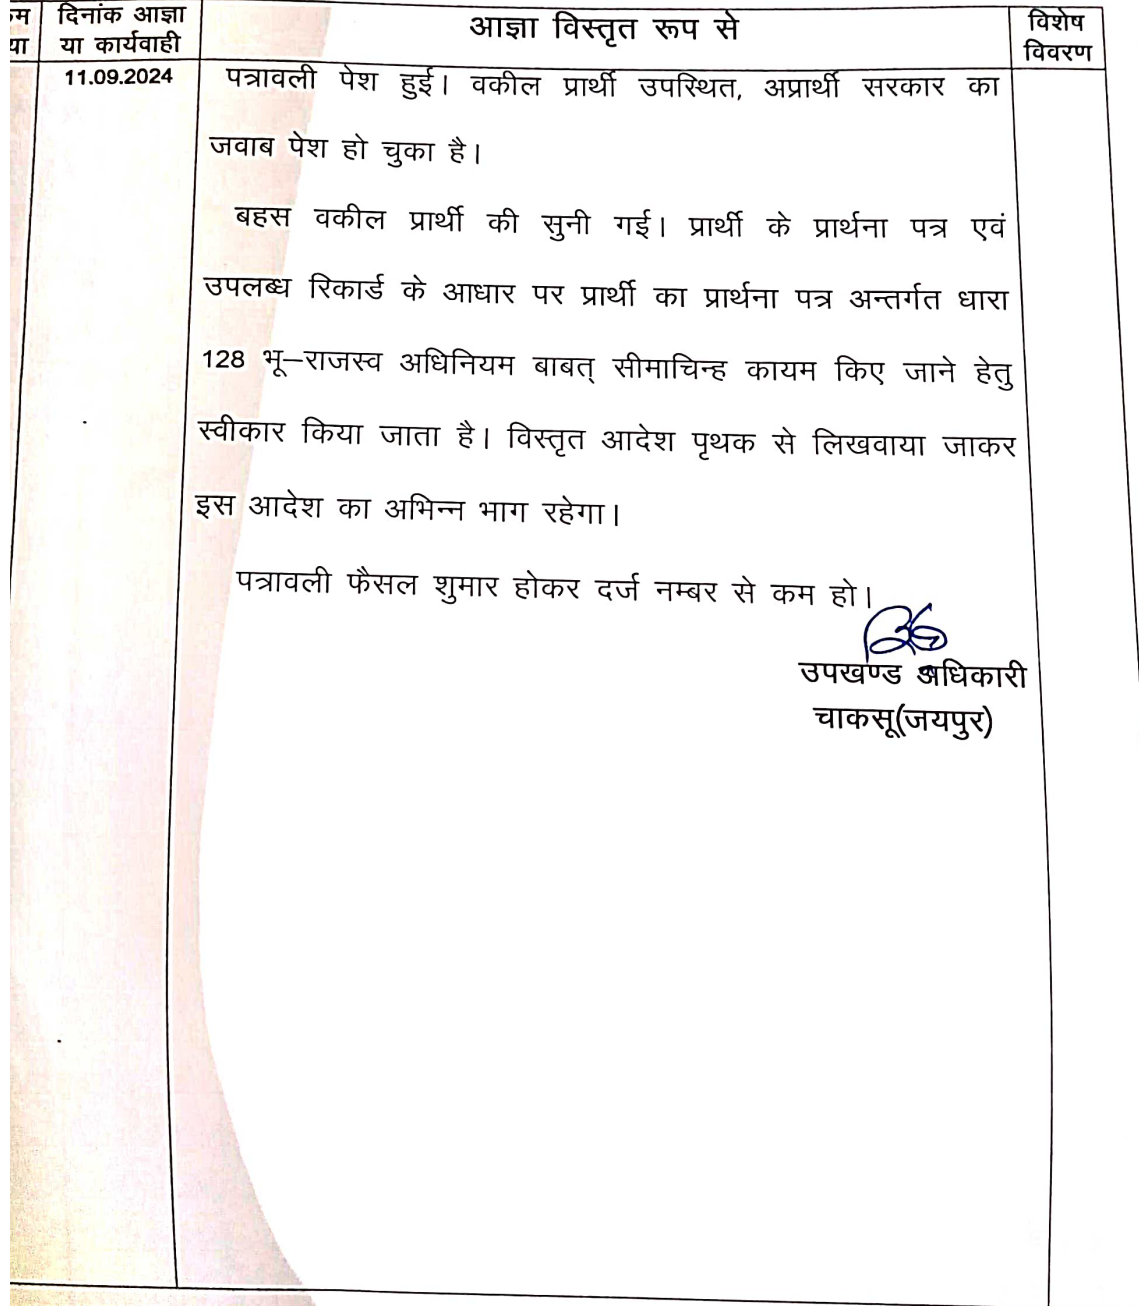 दिनांक आज्ञा
या कार्यवाही
आज्ञा विस्तृत रूप से
विशेष
विवरण
11.09.2024
पत्रावली पेश हुई। वकील प्रार्थी उपस्थित, अप्रार्थी सरकार का
जवाब पेश हो चुका है।
बहस वकील प्रार्थी की सुनी गई। प्रार्थी के प्रार्थना पत्र एवं
उपलब्ध रिकार्ड के आधार पर प्रार्थी का प्रार्थना पत्र अन्तर्गत धारा
128 भू–राजस्व अधिनियम बाबत् सीमाचिन्ह कायम किए जाने हेतु
स्वीकार किया जाता है। विस्तृत आदेश पृथक से लिखवाया जाकर
इस आदेश का अभिन्न भाग रहेगा।
पत्रावली फैसल शुमार होकर दर्ज नम्बर से कम हो।
उपखण्ड अधिकारी
चाकसू(जयपुर)